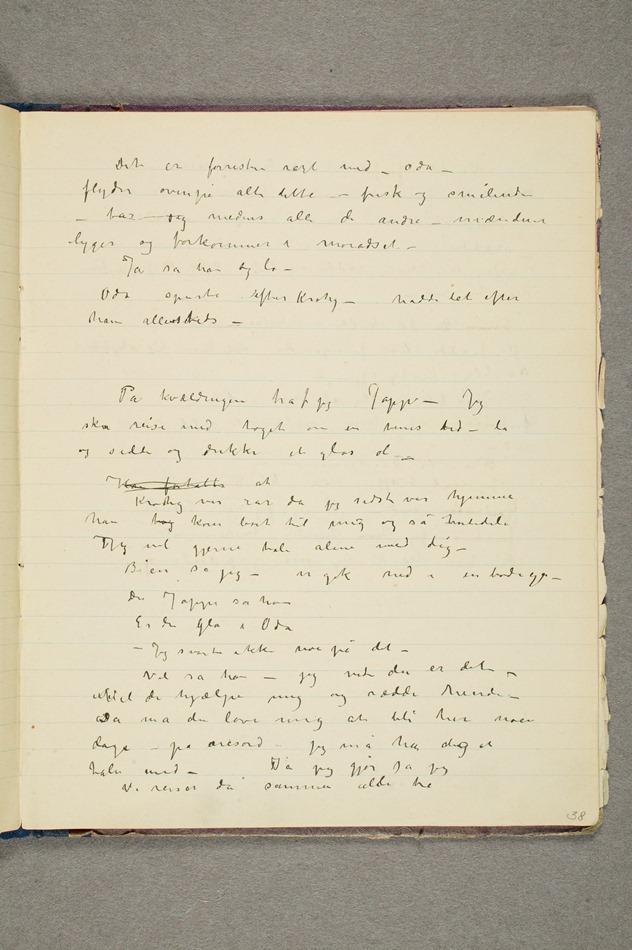 Det er forresten rart med – Oda –
flyder oven på alt dette – frisk og smilende
– medens alle de andre – mændene
lyger og forkommer i moradset –
Ja sa han og lo –
Oda spurte efter Krohg – hadde let efter
ham allesteds –
På kvældningen traf jeg Jappe – Jeg
ska reise med toget om en times tid – la
os sidde og drikke et glas øl –
Han fortalte at
Krohg var rar da jeg sidst var hjemme
han kom bort til mig og så
Jeg vil gjerne tale alene med dig –
Bien sa jeg – vi gik ned i en bodega –
Du Jappe sa han
Er du gla i Oda
– Jeg svarte ikke noe på det –
Vel sa han – jeg ved du er det –
vil du hjælpe mig og redde hende –
Da må du love mig at bli her noen
dage – på æresord – jeg må ha dig at
tale med – Ja jeg gjør sa jeg
Vi reiser da sammen alle tre
38